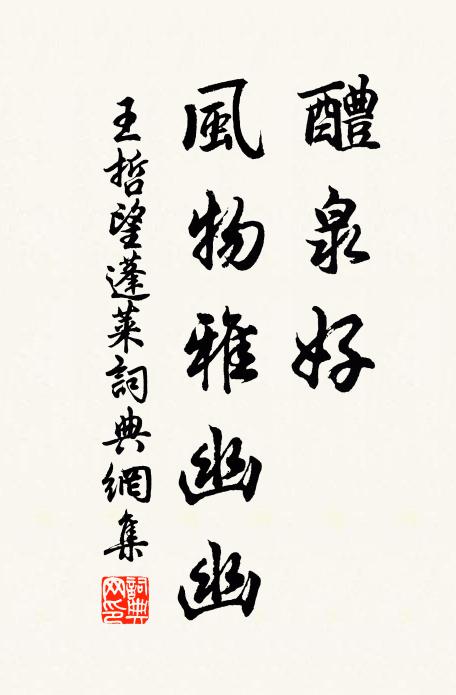 醴泉好
風物雅幽幽
王哲望蓬萊詞典網集
詞典
网